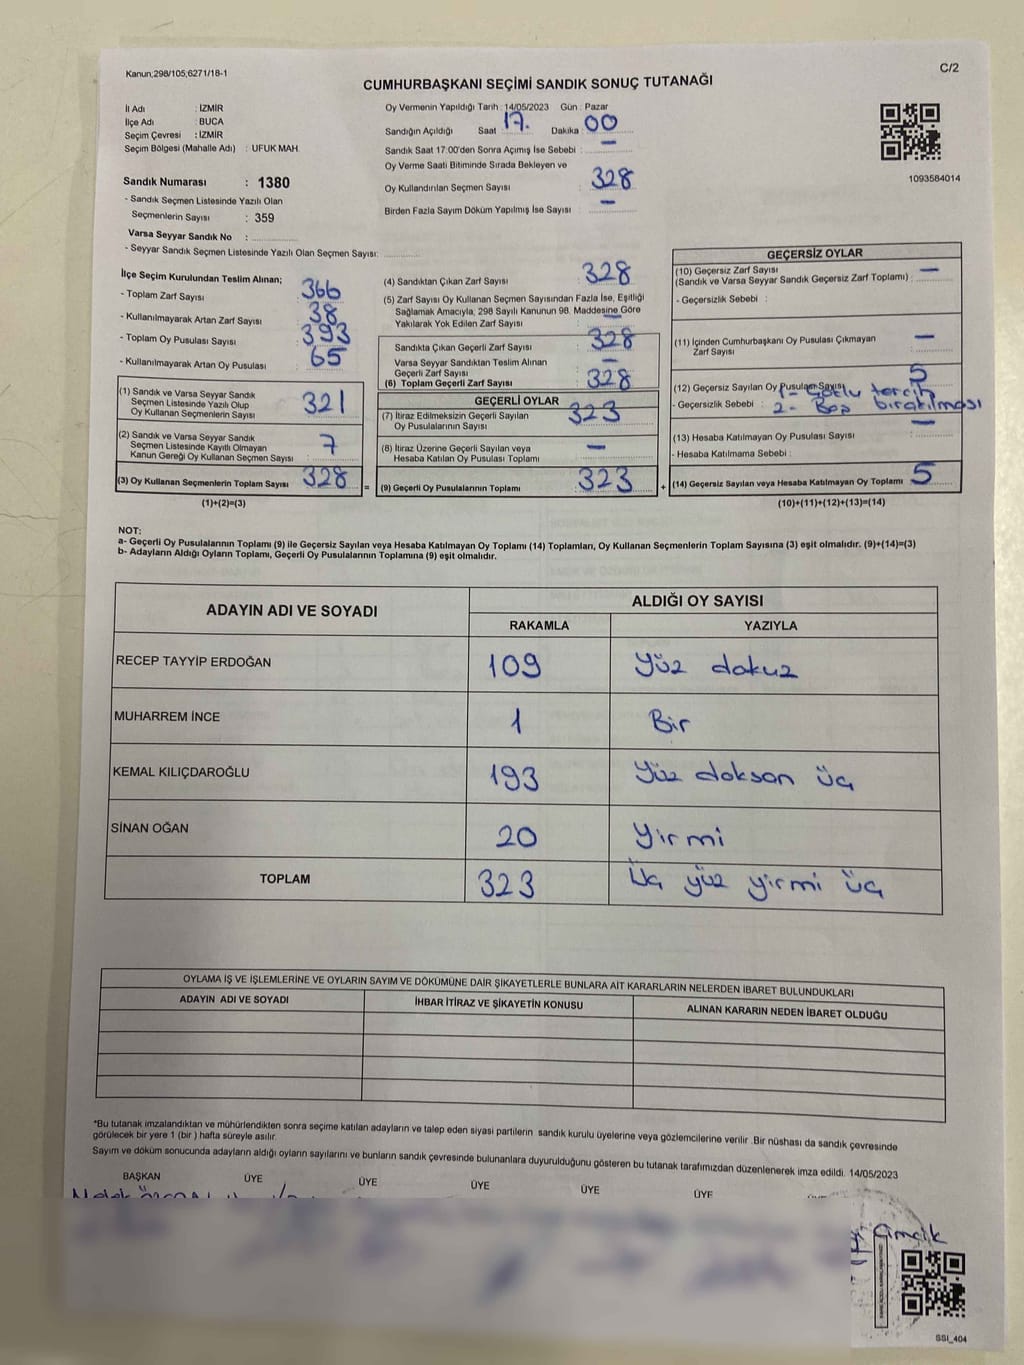 Kanun;298/105;6271/18-1
C/2
CUMHURBAŞKANI SEÇİMİ SANDIK SONUÇ TUTANAĞI
İl Adı : İZMİR
İlçe Adı : BUCA
Seçim Çevresi : İZMİR
Seçim Bölgesi (Mahalle Adı) : UFUK MAH.
Sandık Numarası : 1380
- Sandık Seçmen Listesinde Yazılı Olan
Seçmenlerin Sayısı : 359
Varsa Seyyar Sandık No :
- Seyyar Sandık Seçmen Listesinde Yazılı Olan Seçmen Sayısı:
Oy Vermenin Yapıldığı Tarih : 14/05/2023 Gün : Pazar
Sandığın Açıldığı Saat 17. Dakika 00
Sandık Saat 17:00'den Sonra Açımış İse Sebebi : —
Oy Verme Saati Bitiminde Sırada Bekleyen ve
Oy Kullandırılan Seçmen Sayısı : 328
Birden Fazla Sayım Döküm Yapılmış İse Sayısı : —
1093584014
İlçe Seçim Kurulundan Teslim Alınan;
- Toplam Zarf Sayısı : 366
- Kullanılmayarak Artan Zarf Sayısı : 38
- Toplam Oy Pusulası Sayısı : 393
- Kullanılmayarak Artan Oy Pusulası : 65
(1) Sandık ve Varsa Seyyar Sandık
Seçmen Listesinde Yazılı Olup
Oy Kullanan Seçmenlerin Sayısı 321
(2) Sandık ve Varsa Seyyar Sandık
Seçmen Listesinde Kayıtlı Olmayan
Kanun Gereği Oy Kullanan Seçmen Sayısı 7
(3) Oy Kullanan Seçmenlerin Toplam Sayısı 328 =
(1)+(2)=(3)
(4) Sandıktan Çıkan Zarf Sayısı : 328
(5) Zarf Sayısı Oy Kullanan Seçmen Sayısından Fazla İse, Eşitliği
Sağlamak Amacıyla, 298 Sayılı Kanunun 98. Maddesine Göre
Yakılarak Yok Edilen Zarf Sayısı : —
Sandıkta Çıkan Geçerli Zarf Sayısı : 328
Varsa Seyyar Sandıktan Teslim Alınan
Geçerli Zarf Sayısı : —
(6) Toplam Geçerli Zarf Sayısı : 328
GEÇERLİ OYLAR
(7) İtiraz Edilmeksizin Geçerli Sayılan
Oy Pusulalarının Sayısı 323
(8) İtiraz Üzerine Geçerli Sayılan veya
Hesaba Katılan Oy Pusulası Toplamı : —
(9) Geçerli Oy Pusulalarının Toplamı : 323 +
GEÇERSİZ OYLAR
(10) Geçersiz Zarf Sayısı
(Sandık ve Varsa Seyyar Sandık Geçersiz Zarf Toplamı) : —
- Geçersizlik Sebebi :
(11) İçinden Cumhurbaşkanı Oy Pusulası Çıkmayan
Zarf Sayısı : —
(12) Geçersiz Sayılan Oy Pusulası Sayısı 5
1- tercih
- Geçersizlik Sebebi : 2- Boş bırakılması
(13) Hesaba Katılmayan Oy Pusulası Sayısı : —
- Hesaba Katılmama Sebebi :
(14) Geçersiz Sayılan veya Hesaba Katılmayan Oy Toplamı : 5
(10)+(11)+(12)+(13)=(14)
NOT:
a- Geçerli Oy Pusulalarının Toplamı (9) ile Geçersiz Sayılan veya Hesaba Katılmayan Oy Toplamı (14) Toplamları, Oy Kullanan Seçmenlerin Toplam Sayısına (3) eşit olmalıdır. (9)+(14)=(3)
b- Adayların Aldığı Oyların Toplamı, Geçerli Oy Pusulalarının Toplamına (9) eşit olmalıdır.
ADAYIN ADI VE SOYADI
ALDIĞI OY SAYISI
RAKAMLA YAZIYLA
RECEP TAYYİP ERDOĞAN 109 Yüz dokuz
MUHARREM İNCE 1 Bir
KEMAL KILIÇDAROĞLU 193 Yüz doksan üç
SİNAN OĞAN 20 Yirmi
TOPLAM 323 Üç yüz yirmi üç
OYLAMA İŞ VE İŞLEMLERİNE VE OYLARIN SAYIM VE DÖKÜMÜNE DAİR ŞİKAYETLERLE BUNLARA AİT KARARLARIN NELERDEN İBARET BULUNDUKLARI
ADAYIN ADI VE SOYADI İHBAR İTİRAZ VE ŞİKAYETİN KONUSU ALINAN KARARIN NEDEN İBARET OLDUĞU
*Bu tutanak imzalandıktan ve mühürlendikten sonra seçime katılan adayların ve talep eden siyasi partilerin sandık kurulu üyelerine veya gözlemcilerine verilir .Bir nüshası da sandık çevresinde
görülecek bir yere 1 (bir ) hafta süreyle asılır.
Sayım ve döküm sonucunda adayların aldığı oyların sayılarını ve bunların sandık çevresinde bulunanlara duyurulduğunu gösteren bu tutanak tarafımızdan düzenlenerek imza edildi. 14/05/2023
BAŞKAN ÜYE ÜYE ÜYE ÜYE ÜYE
SSI_404